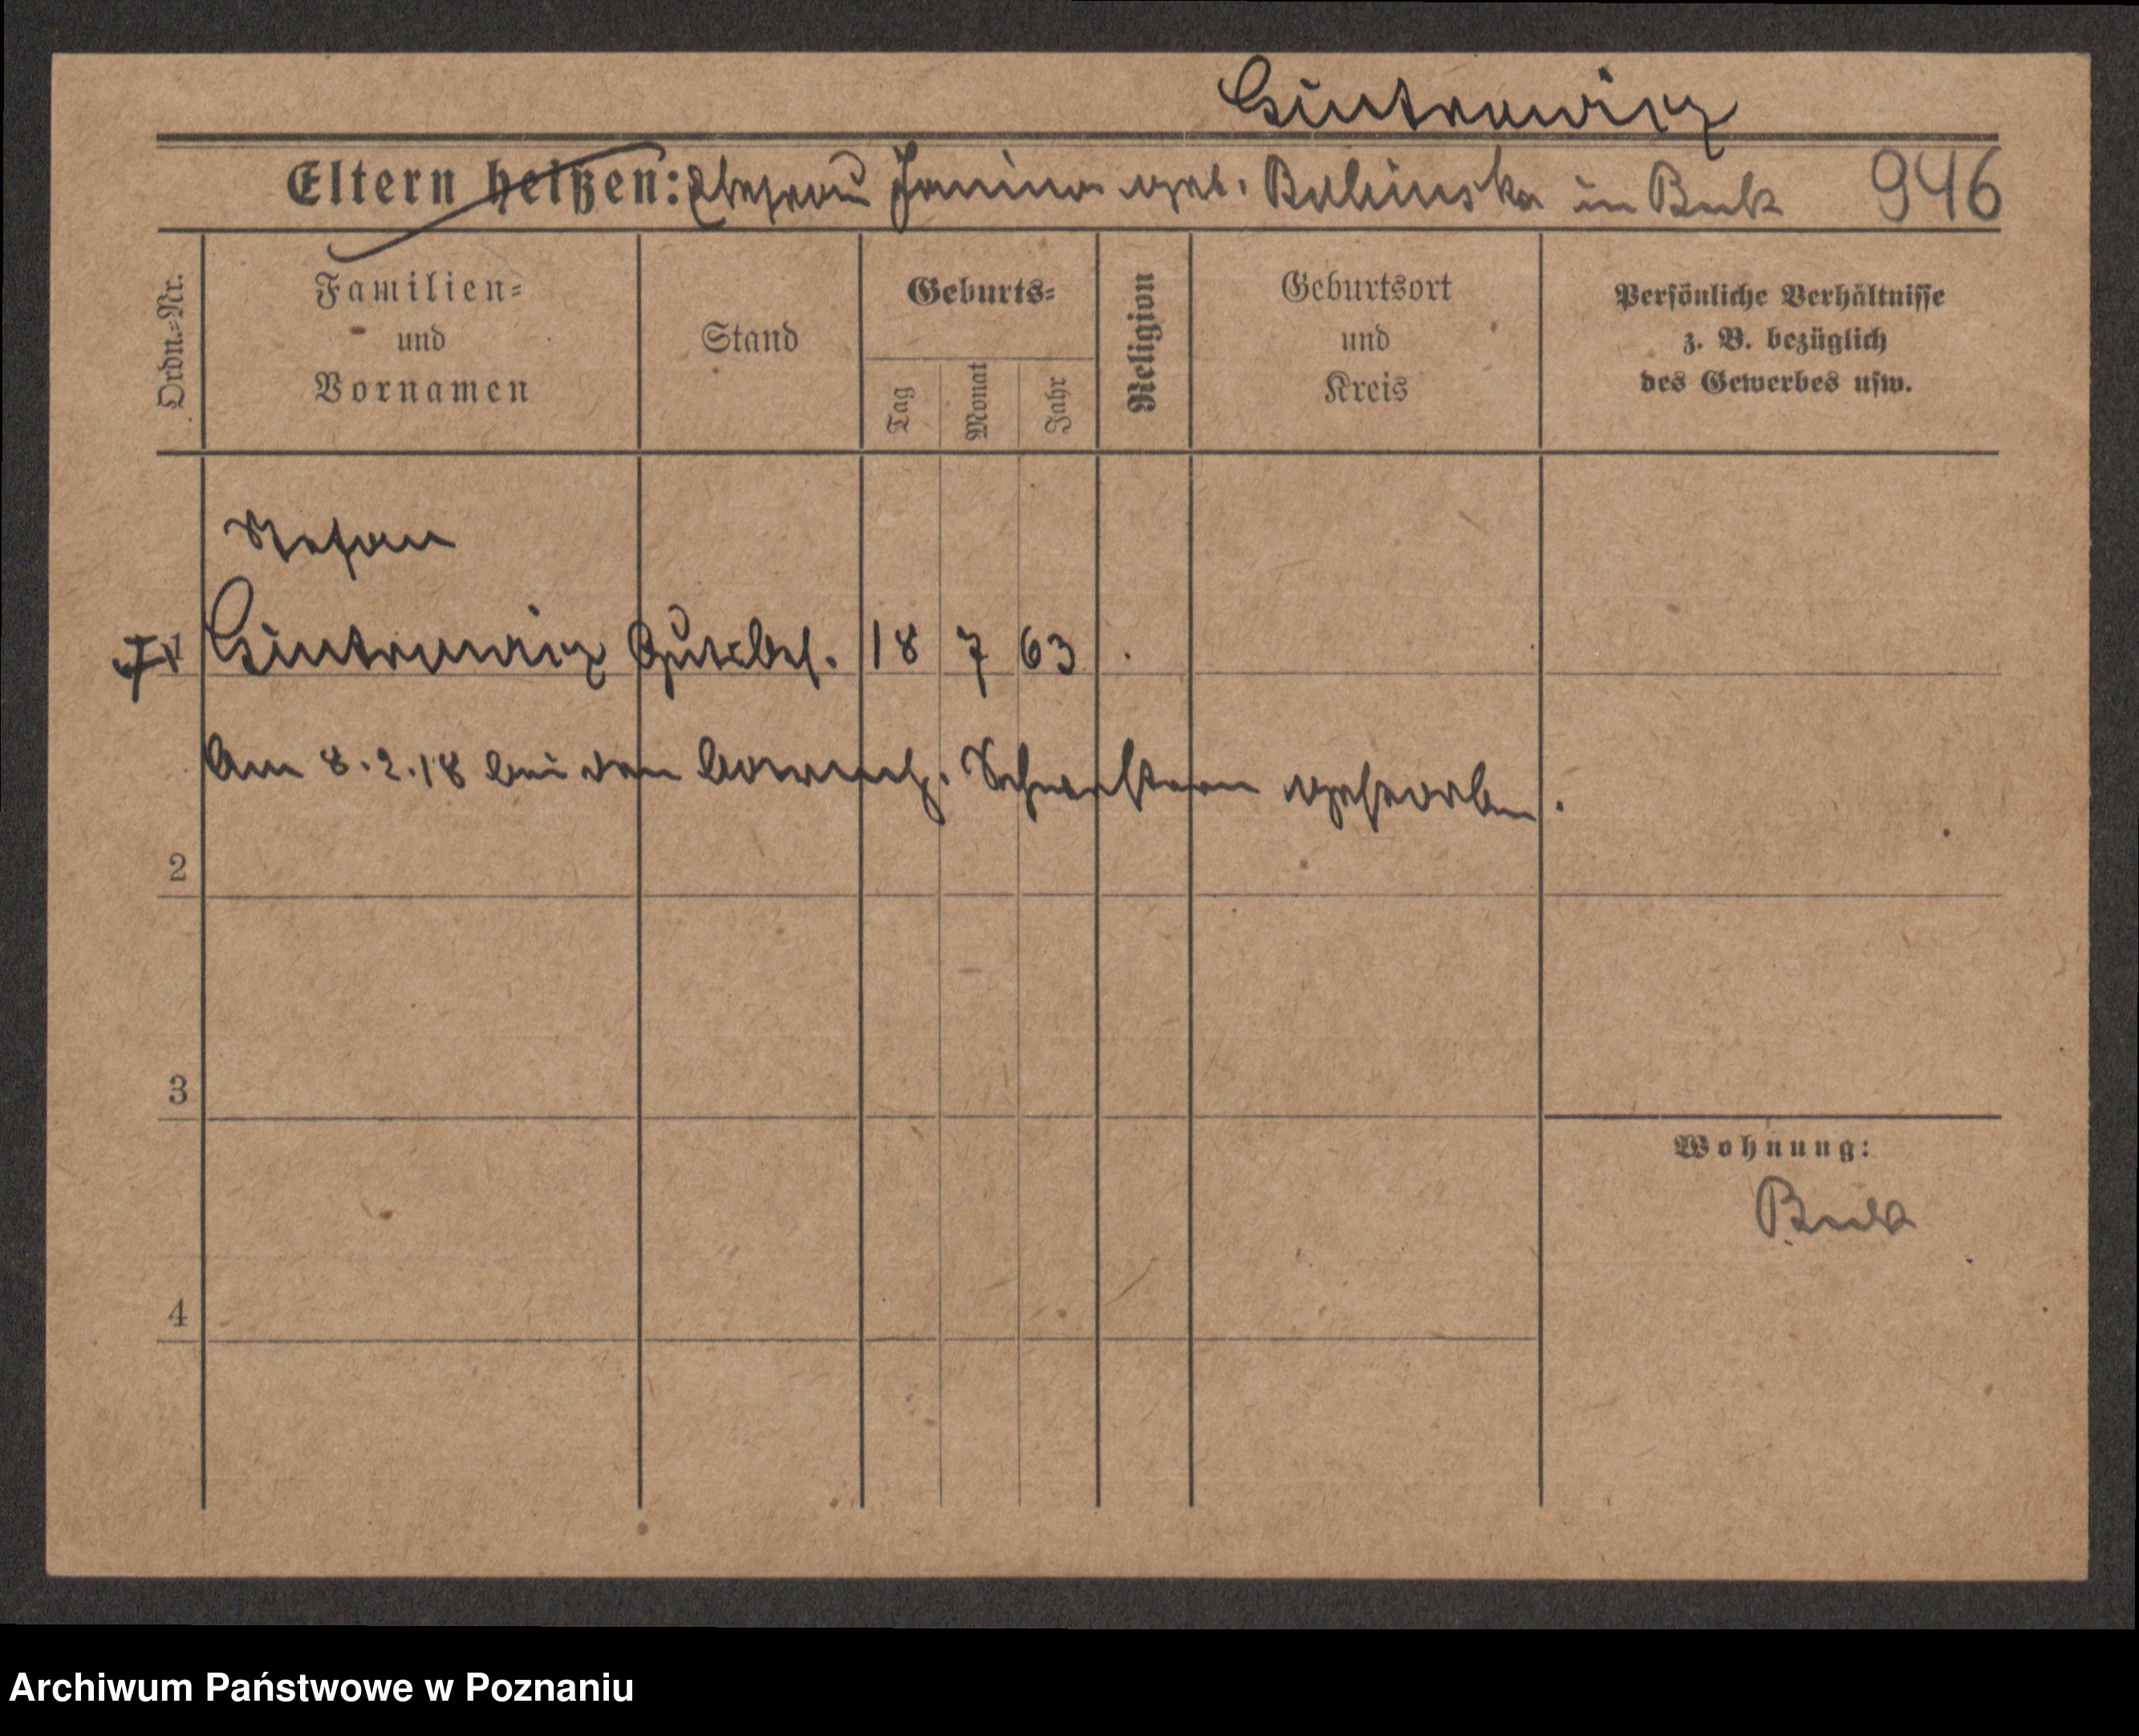 Gintrowicz
Eltern heißen: Ehefrau Janina geb. Babinska in Buk 946
Ordn.=Nr.
Familien=
und
Vornamen
Stand
Geburts=
Tag
Monat
Jahr
Religion
Geburtsort
und
Kreis
Persönliche Verhältnisse
z. B. bezüglich
des Gewerbes usw.
Stefan
1 Gintrowicz Gutsbes. 18 7 63
Am 8.2.18 bei den barmh. Schwestern gestorben.
2
3
Wohnung:
Buk
4
Archiwum Państwowe w Poznaniu